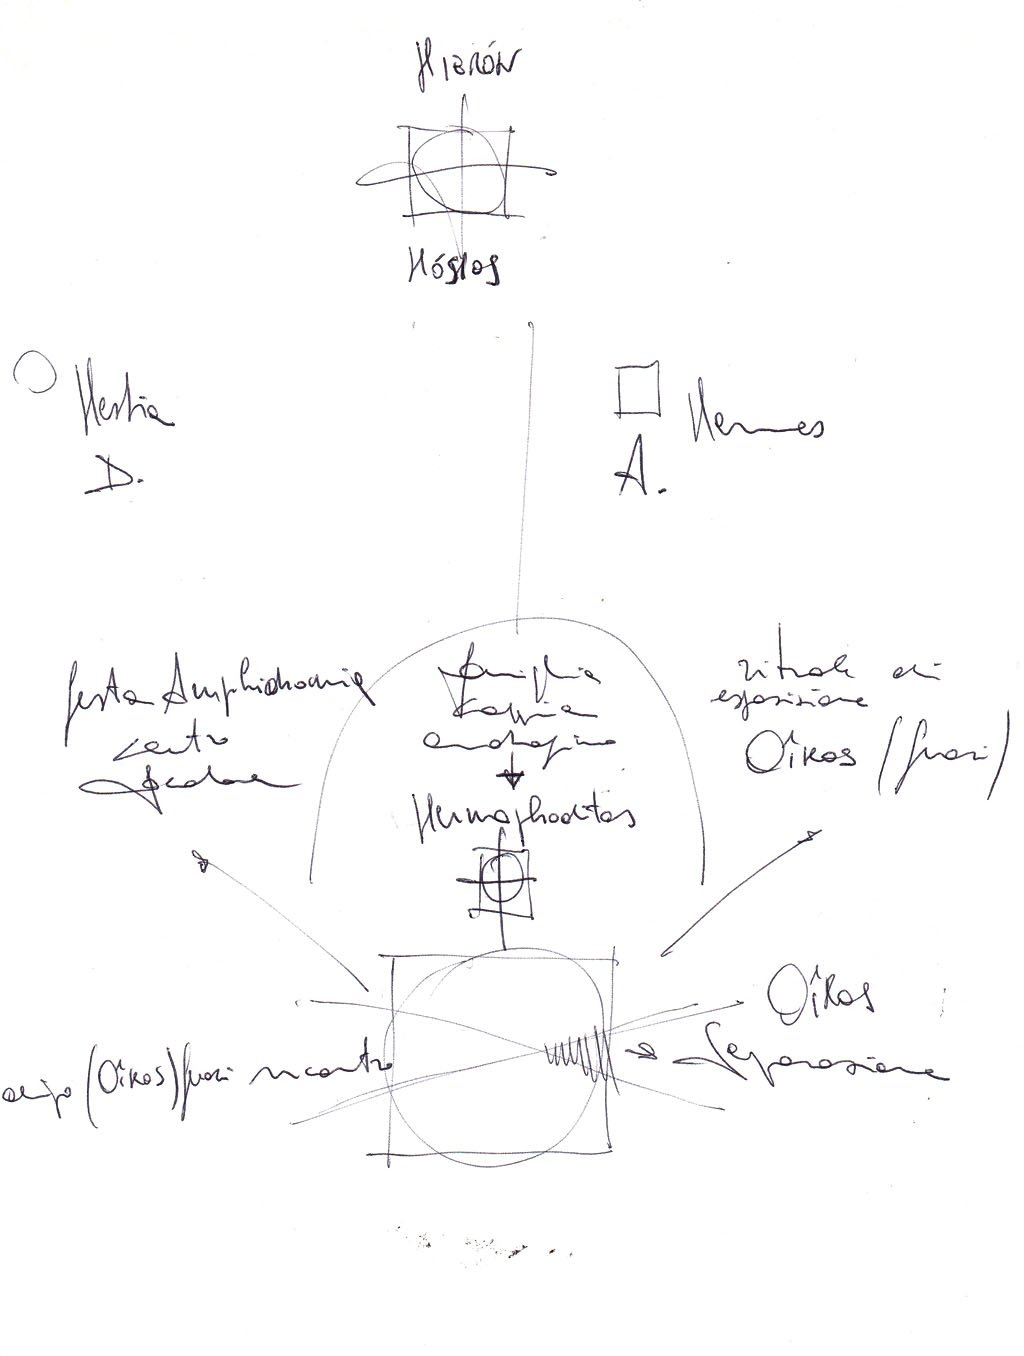 HIERÓN
HÓSIOS
Hestia
D.
Hermes
A.
festa Amphidromia
centro
famiglia
coppia
androgino
Hermaphroditos
rituale di
esposizione
Oîkos (fuori)
Oîkos
Separazione
(Oîkos) fuori incontro